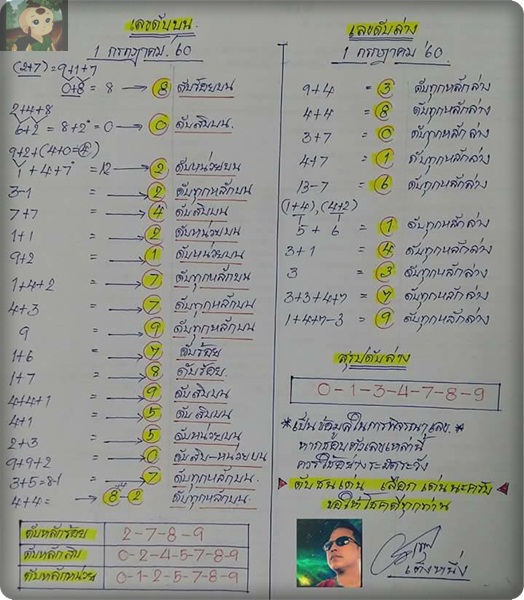 เลขดับบน
1 กรกฎาคม 60
(2+7) = 9+1+7
0+8 = 8 → 8 ดับร้อยบน
2+4+8
6+2 = 8+2 = 0 → 0 ดับสิบบน
9+2+(4+0=4)
1+4+7 = 12 → 2 ดับหน่วยบน
3-1 = → 2 ดับทุกหลักบน
7+7 = → 4 ดับสิบบน
1+1 = → 2 ดับหน่วยบน
9+2 = → 1 ดับหน่วยบน
1+4+2 = → 7 ดับทุกหลักบน
4+3 = → 7 ดับทุกหลักบน
9 = → 9 ดับทุกหลักบน
1+6 = → 7 ดับร้อย
1+7 = → 8 ดับร้อย
4+4+1 = → 9 ดับสิบบน
4+1 = → 5 ดับสิบบน
2+3 = → 5 ดับหน่วยบน
9+9+2 = → 0 ดับสิบ-หน่วยบน
3+5=8-1 → 7 ดับทุกหลักบน
4+4 = → 8-2 ดับทุกหลักบน
ดับหลักร้อย 2-7-8-9
ดับหลักสิบ 0-2-4-5-7-8-9
ดับหลักหน่วย 0-1-2-5-7-8-9
เลขดับล่าง
1 กรกฎาคม 60
9+4 = 3 ดับทุกหลักล่าง
4+4 = 8 ดับทุกหลักล่าง
3+7 = 0 ดับทุกหลักล่าง
4+7 = 1 ดับทุกหลักล่าง
13-7 = 6 ดับทุกหลักล่าง
(1+4),(4+2)
5 + 6 = 1 ดับทุกหลักล่าง
3+1 = 4 ดับทุกหลักล่าง
3 = 3 ดับทุกหลักล่าง
3+3+4+7 = 7 ดับทุกหลักล่าง
1+4+7-3 = 9 ดับทุกหลักล่าง
สรุปดับล่าง
0-1-3-4-7-8-9
*เป็นข้อมูลในการพิจารณาเลข*
หากชอบตัวเลขเหล่านี้
ควรใช้อย่างระมัดระวัง
ดับชนเด่น เลือกเด่นนะครับ
ขอให้โชคดีทุกท่าน
เต๊งหนึ่ง